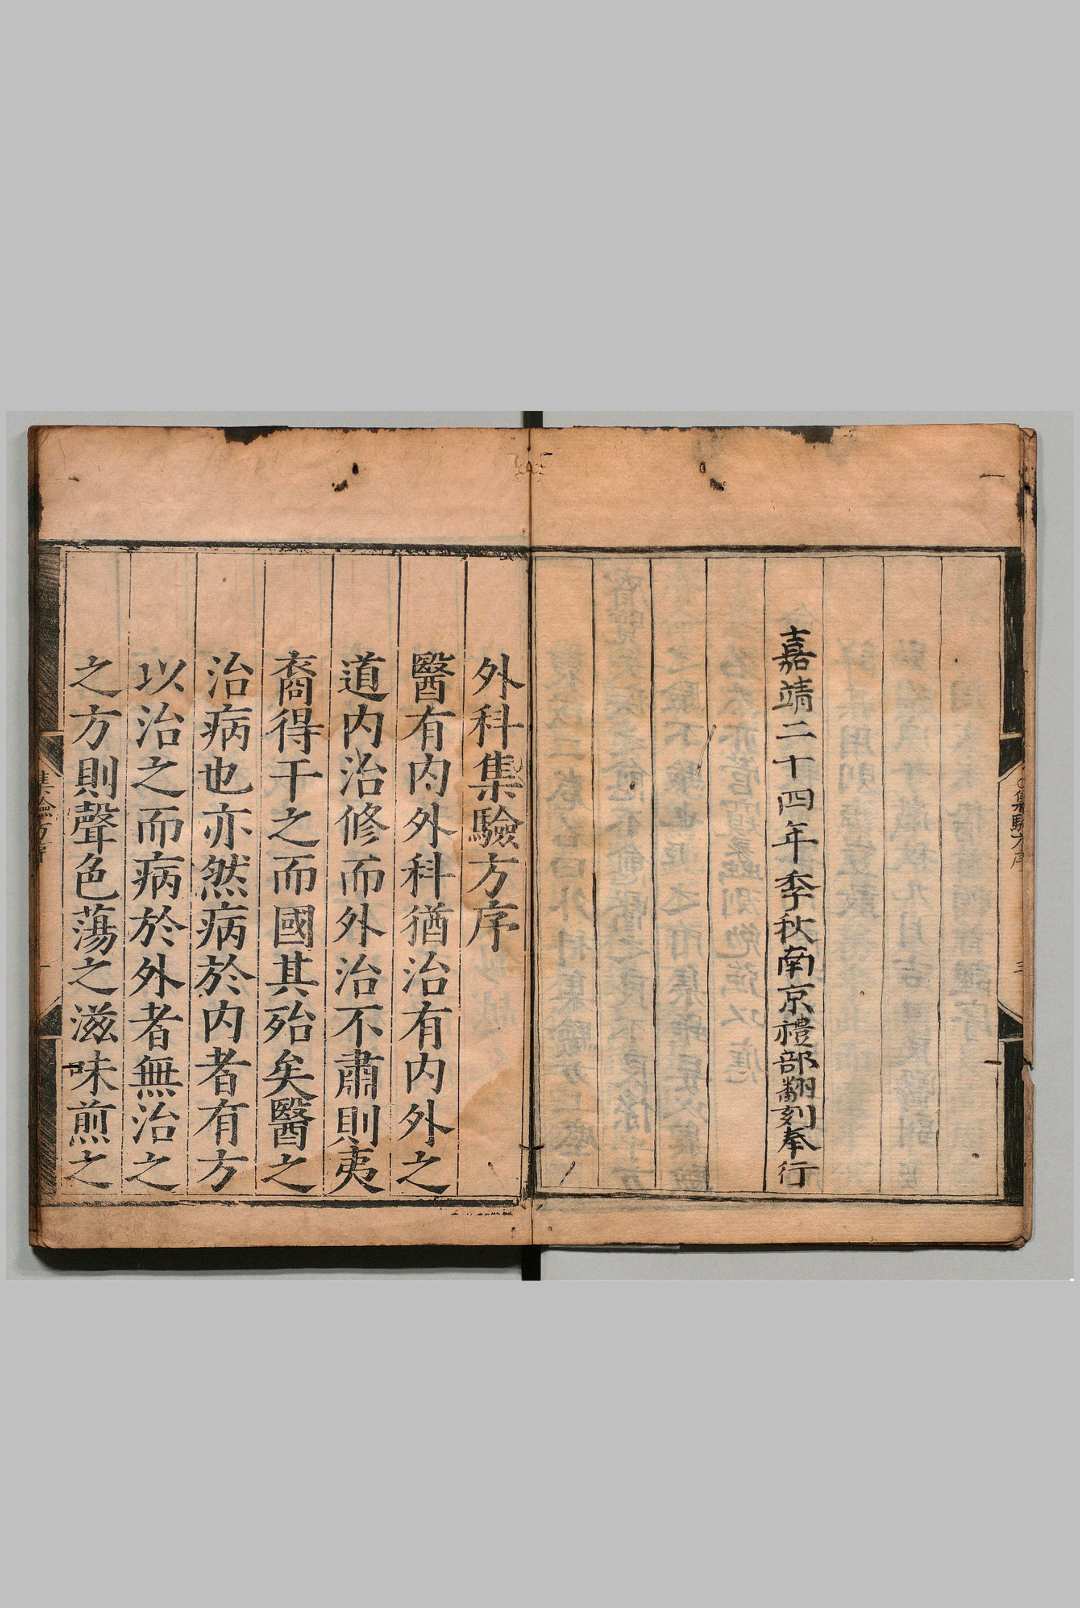 嘉靖二十四年季秋南京禮部翻刻奉行
集驗方序
三
外科集驗方序
醫有内外科猶治有内外之
道内治修而外治不肅則夷
裔得干之而國其殆矣醫之
治病也亦然病於内者有方
以治之而病於外者無治之
之方則聲色蕩之滋味煎之
集驗方序
一